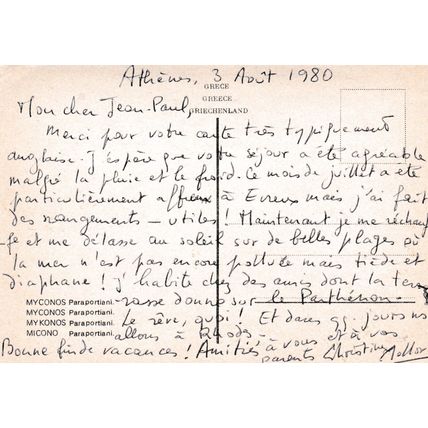 Athènes, 3 Août 1980
GRECE
GREECE
GRIECHENLAND
Mon cher Jean-Paul,
Merci pour votre carte très typiquement
anglaise. J'espère que votre séjour a été agréable
malgré la pluie et le froid. Ce mois de juillet a été
particulièrement affreux à Evreux mais j'ai fait
des rangements – utiles ! Maintenant je me réchauf-
fe et me délasse au soleil sur de belles plages où
la mer n'est pas encore polluée mais tiède et
diaphane ! J'habite chez des amis dont la ter-
rasse donne sur le Parthénon.
MYCONOS Paraportiani.
MYCONOS Paraportiani.
MYKONOS Paraportiani.
MICONO Paraportiani.
Le rêve, quoi ! Et dans qq. jours ns
allons à Rhodes.
Bonne fin de vacances ! Amitiés à vous et à vos
parents Christine